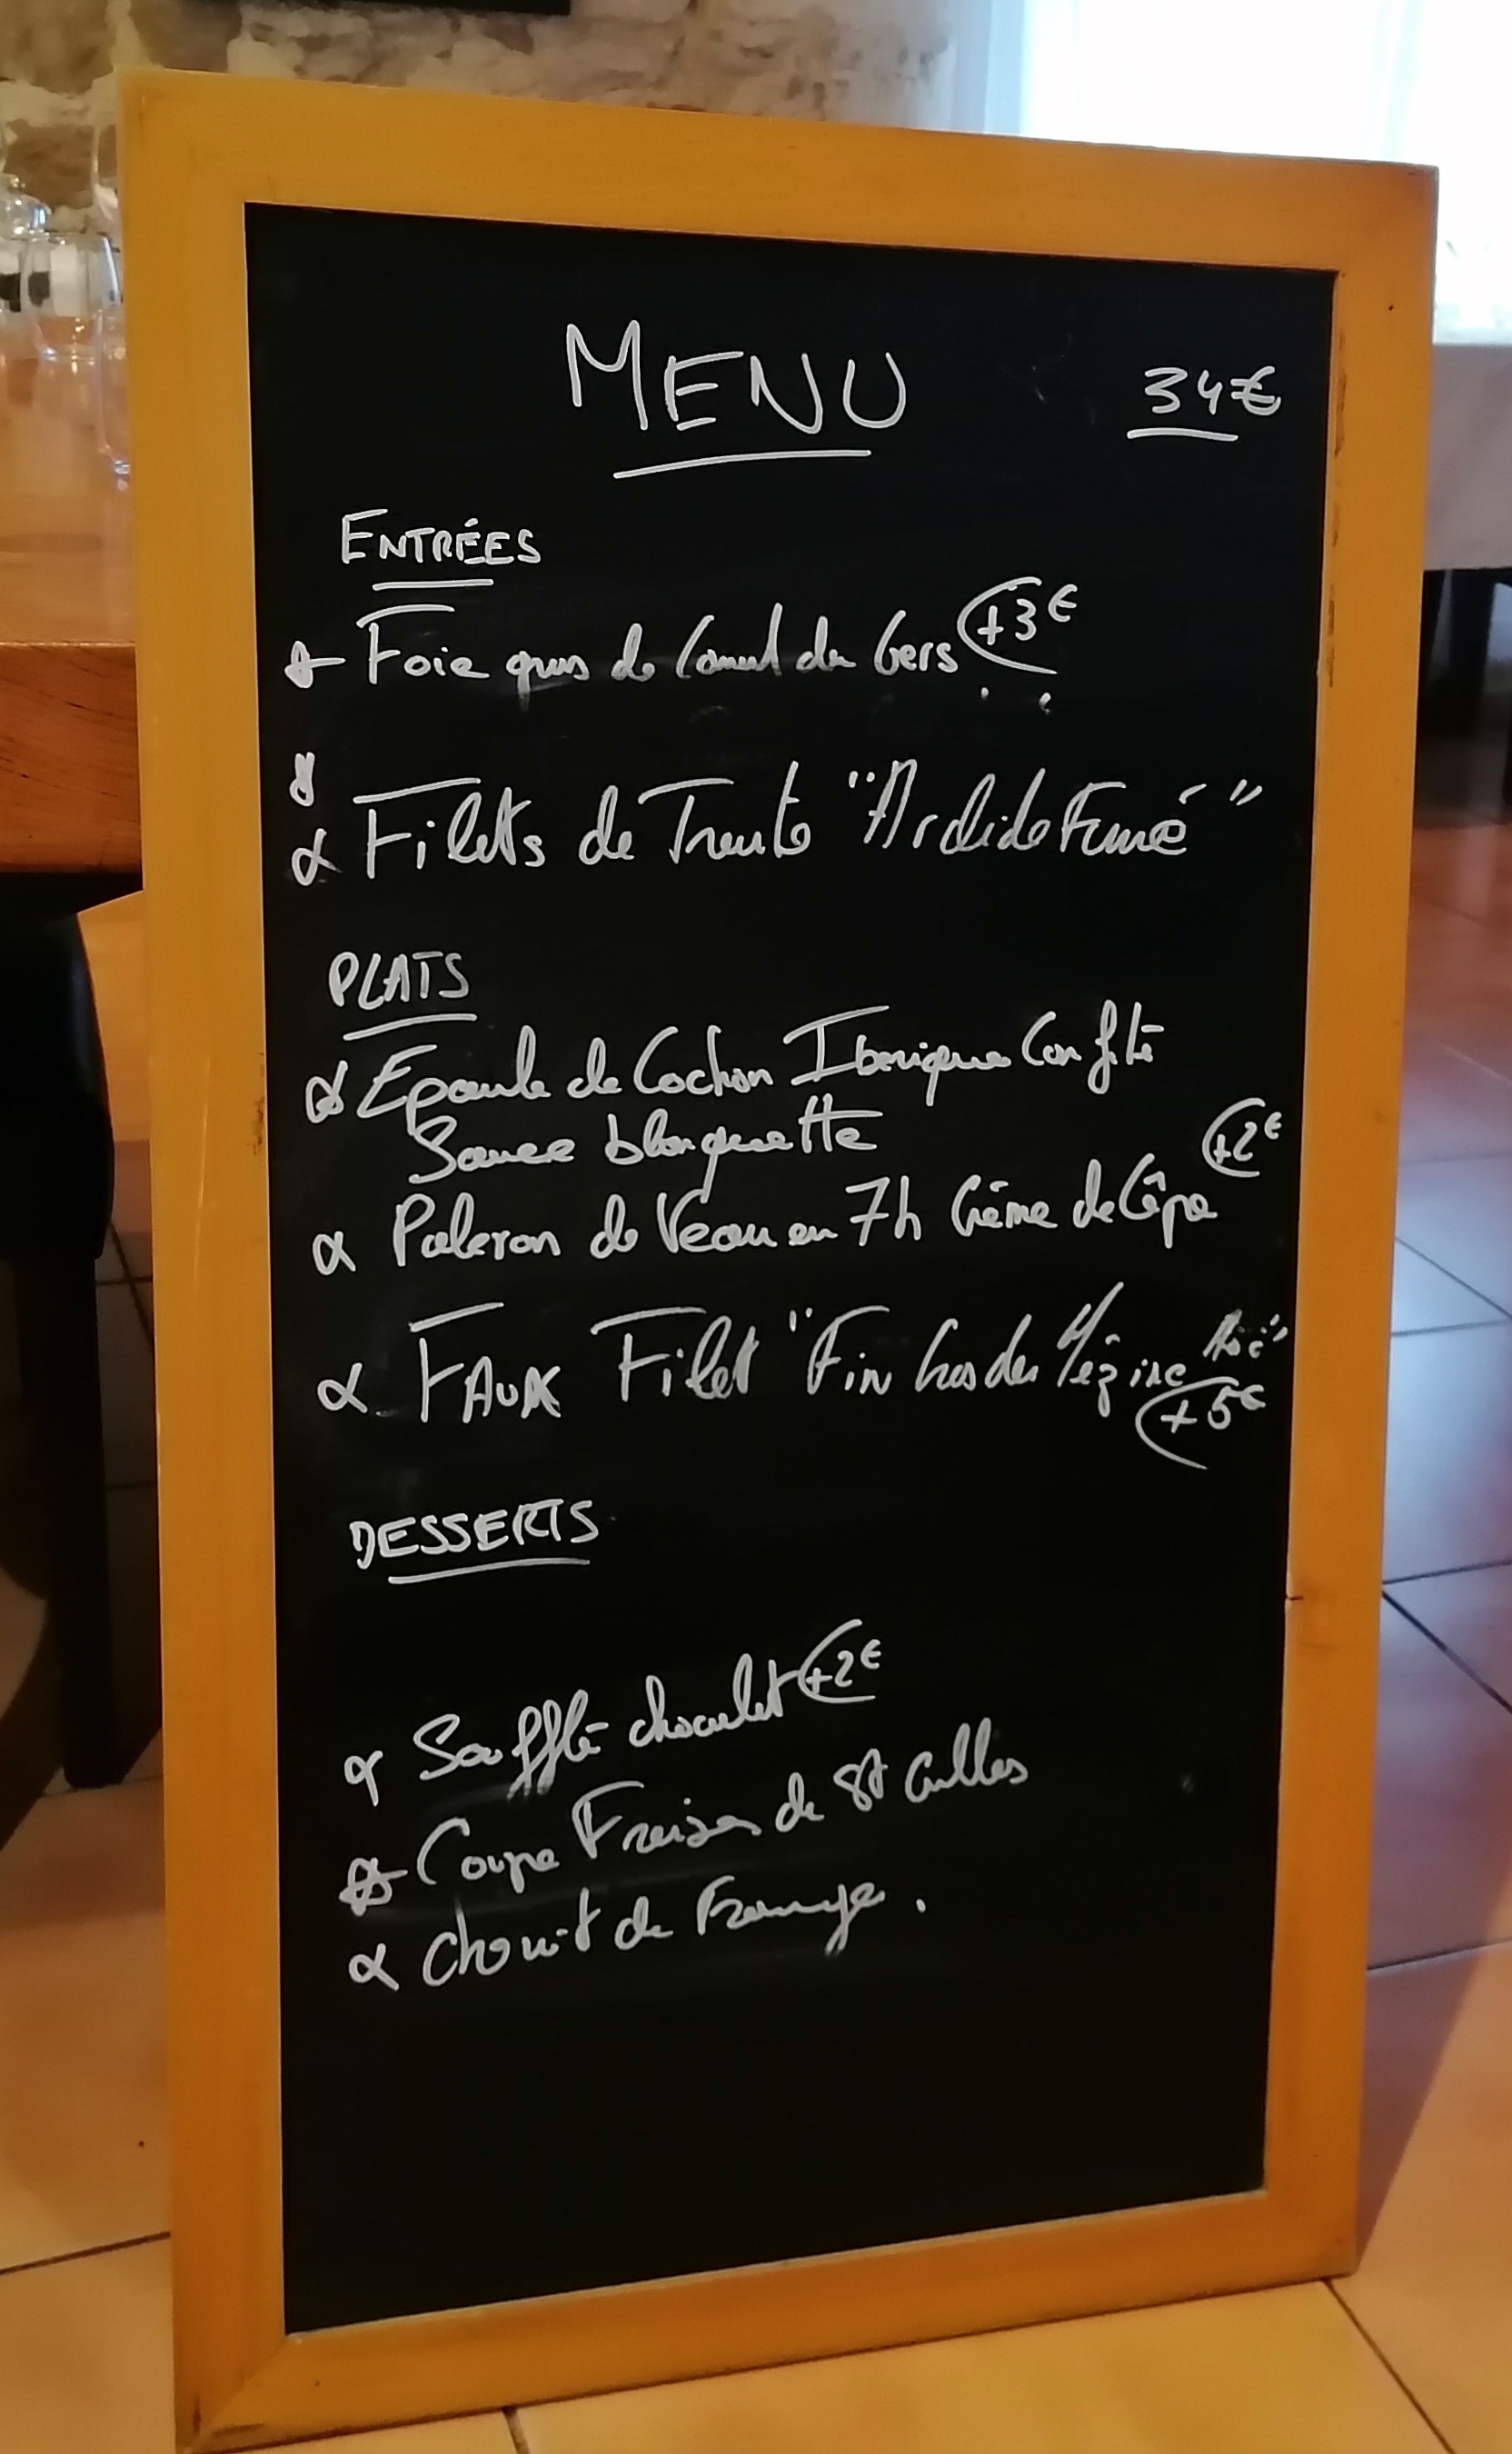 MENU 34€
ENTRÉES
Foie gras de Canard du Gers +3€
Filets de Truite "Ardide Fumé"
PLATS
Epaule de Cochon Iberique Confite
Sauce blanquette
Paleron de Veau en 7h Crème de Cêpe +2€
FAUX Filet "Fin Gras du Mézinc
+5€
DESSERTS
Soufflé chocolat +2€
Coupe Fraises de St Gilles
de Fromage.